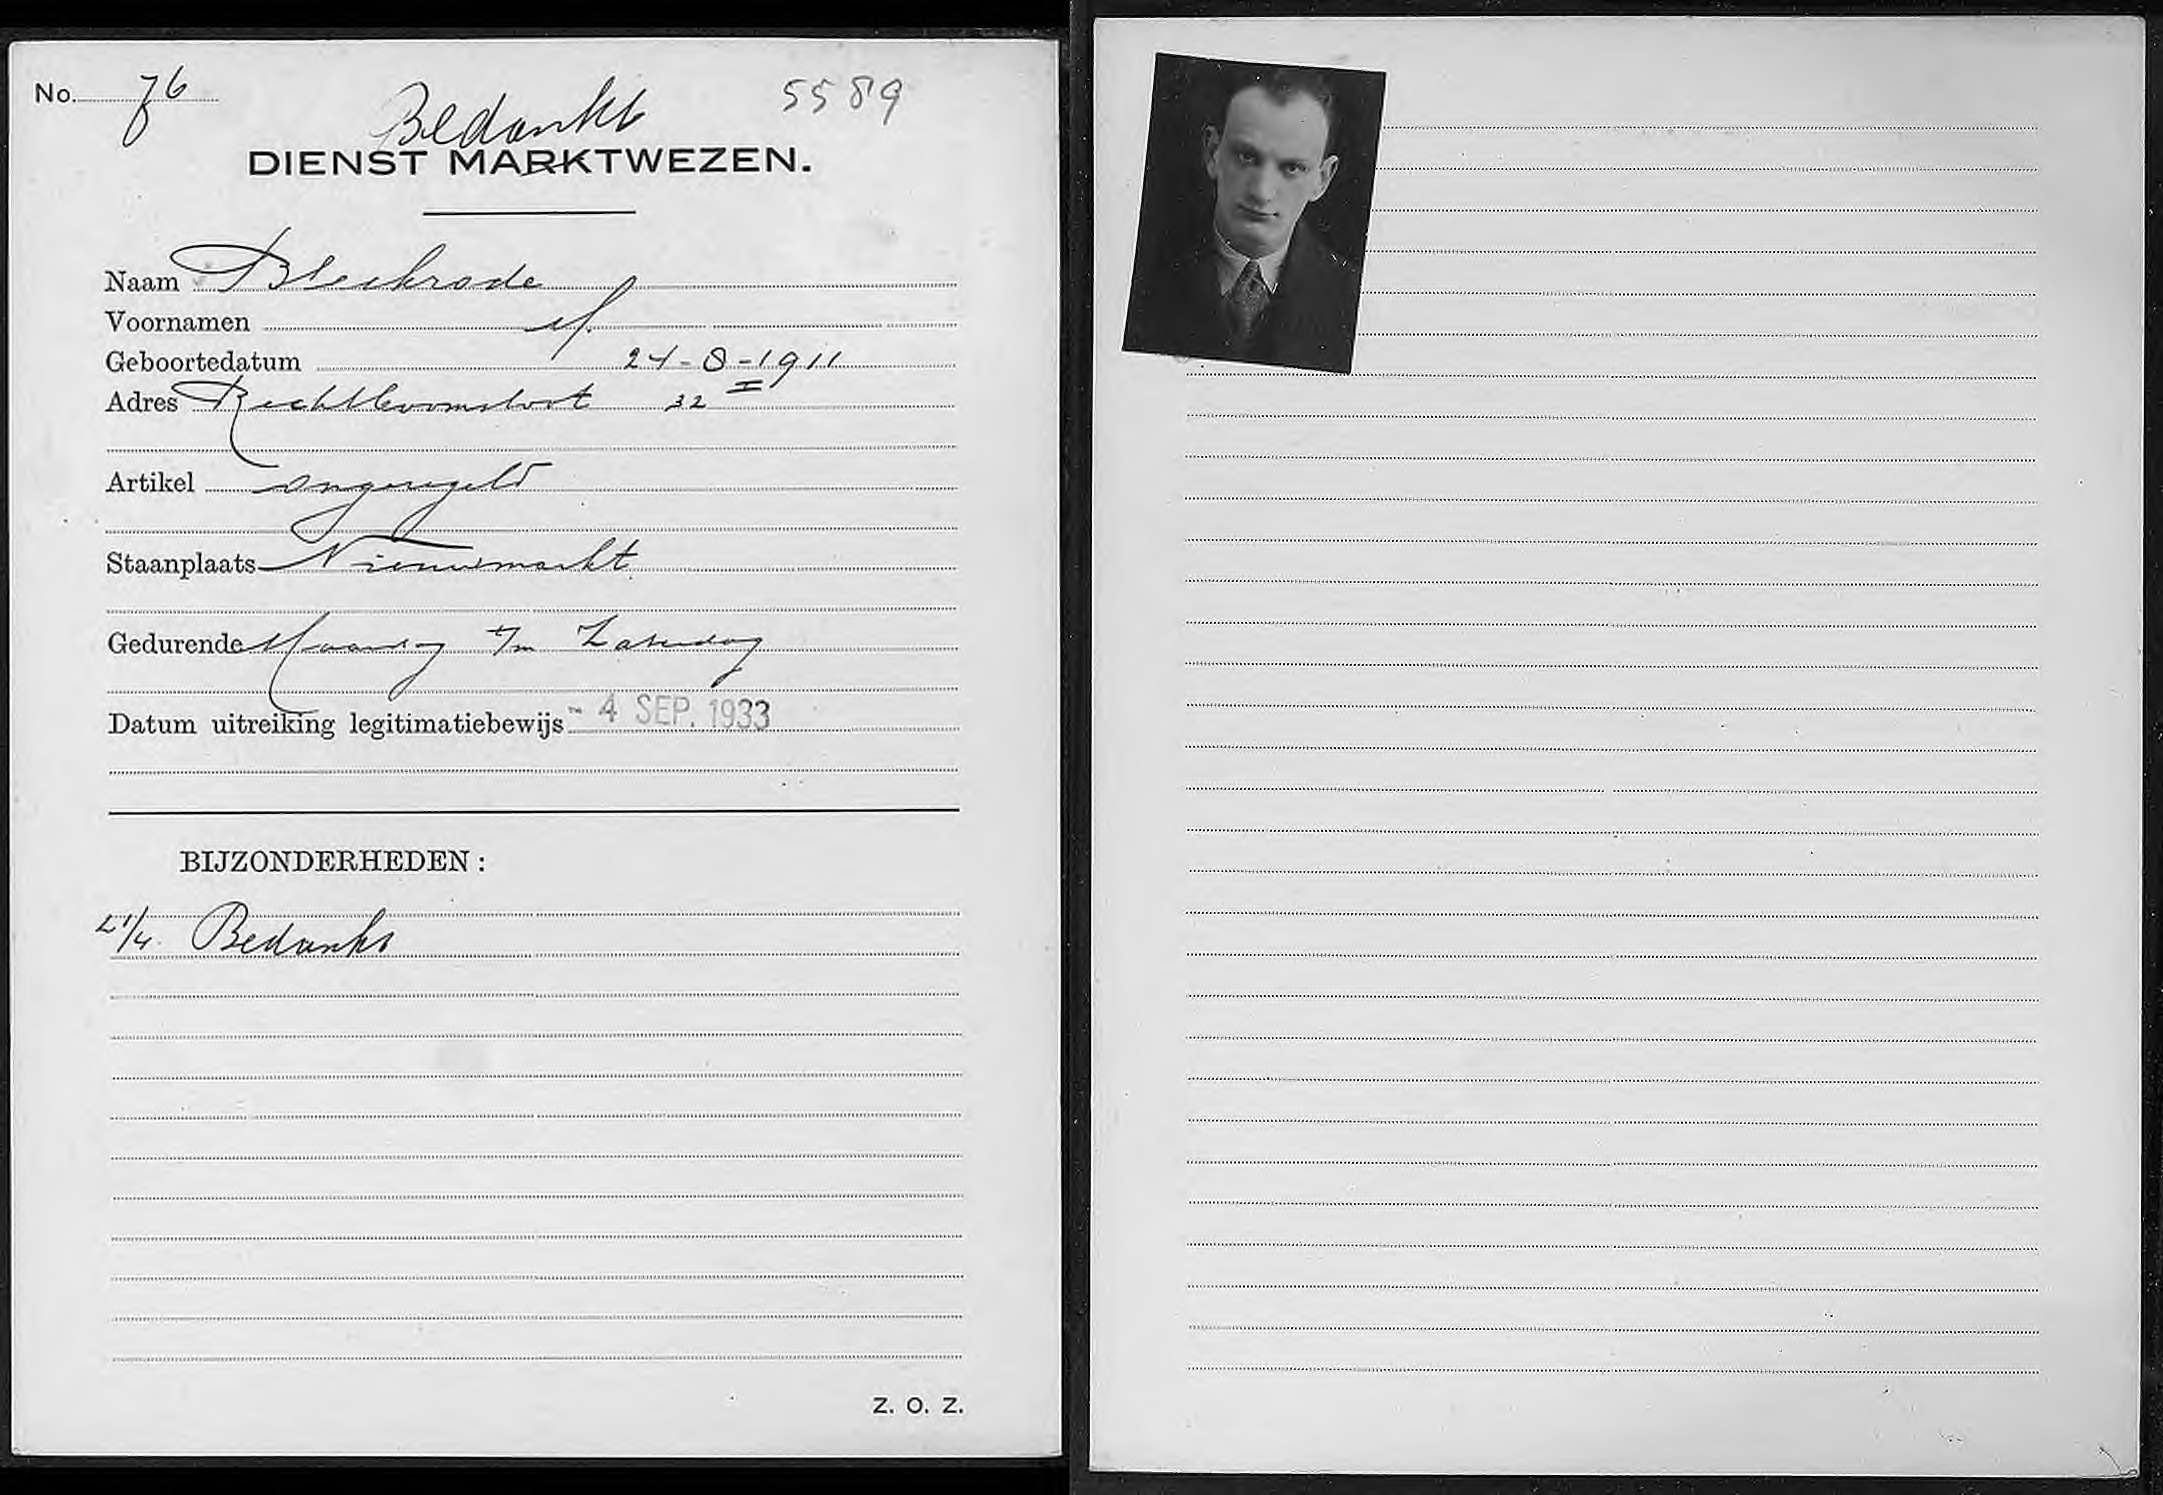 No. 76
Bedankt
5589
DIENST MARKTWEZEN.
Naam Bleekrode
Voornamen
Geboortedatum 24-8-1911
Adres Rechtboomsloot 32 I
Artikel ongeregeld
Staanplaats Nieuwmarkt
Gedurende Maandag t/m Zaterdag
Datum uitreiking legitimatiebewijs - 4 SEP. 1933
BIJZONDERHEDEN:
Bedankt
Z. O. Z.